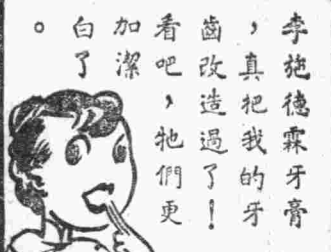 李施德霖牙膏
，真把我的牙
齒改造過了！
看吧，牠們更
加潔
白了
。